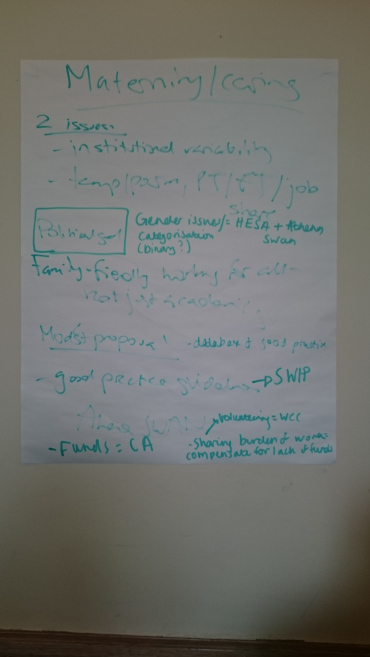 Maternity/caring
2 issues:
- institutional variability
- temp/perm, PT/FT/job
Share
Political goal
Gender issues/= HESA + Athena
categorisation
Swan
(binary?)
Family-friendly working for all -
not just academic.
Modest proposal - database of good practice
- good practice guidelines → SWIP
Athena SWAN
volunteering = WCC
- Funds = CA
- Sharing burden of work
compensate for lack of funds